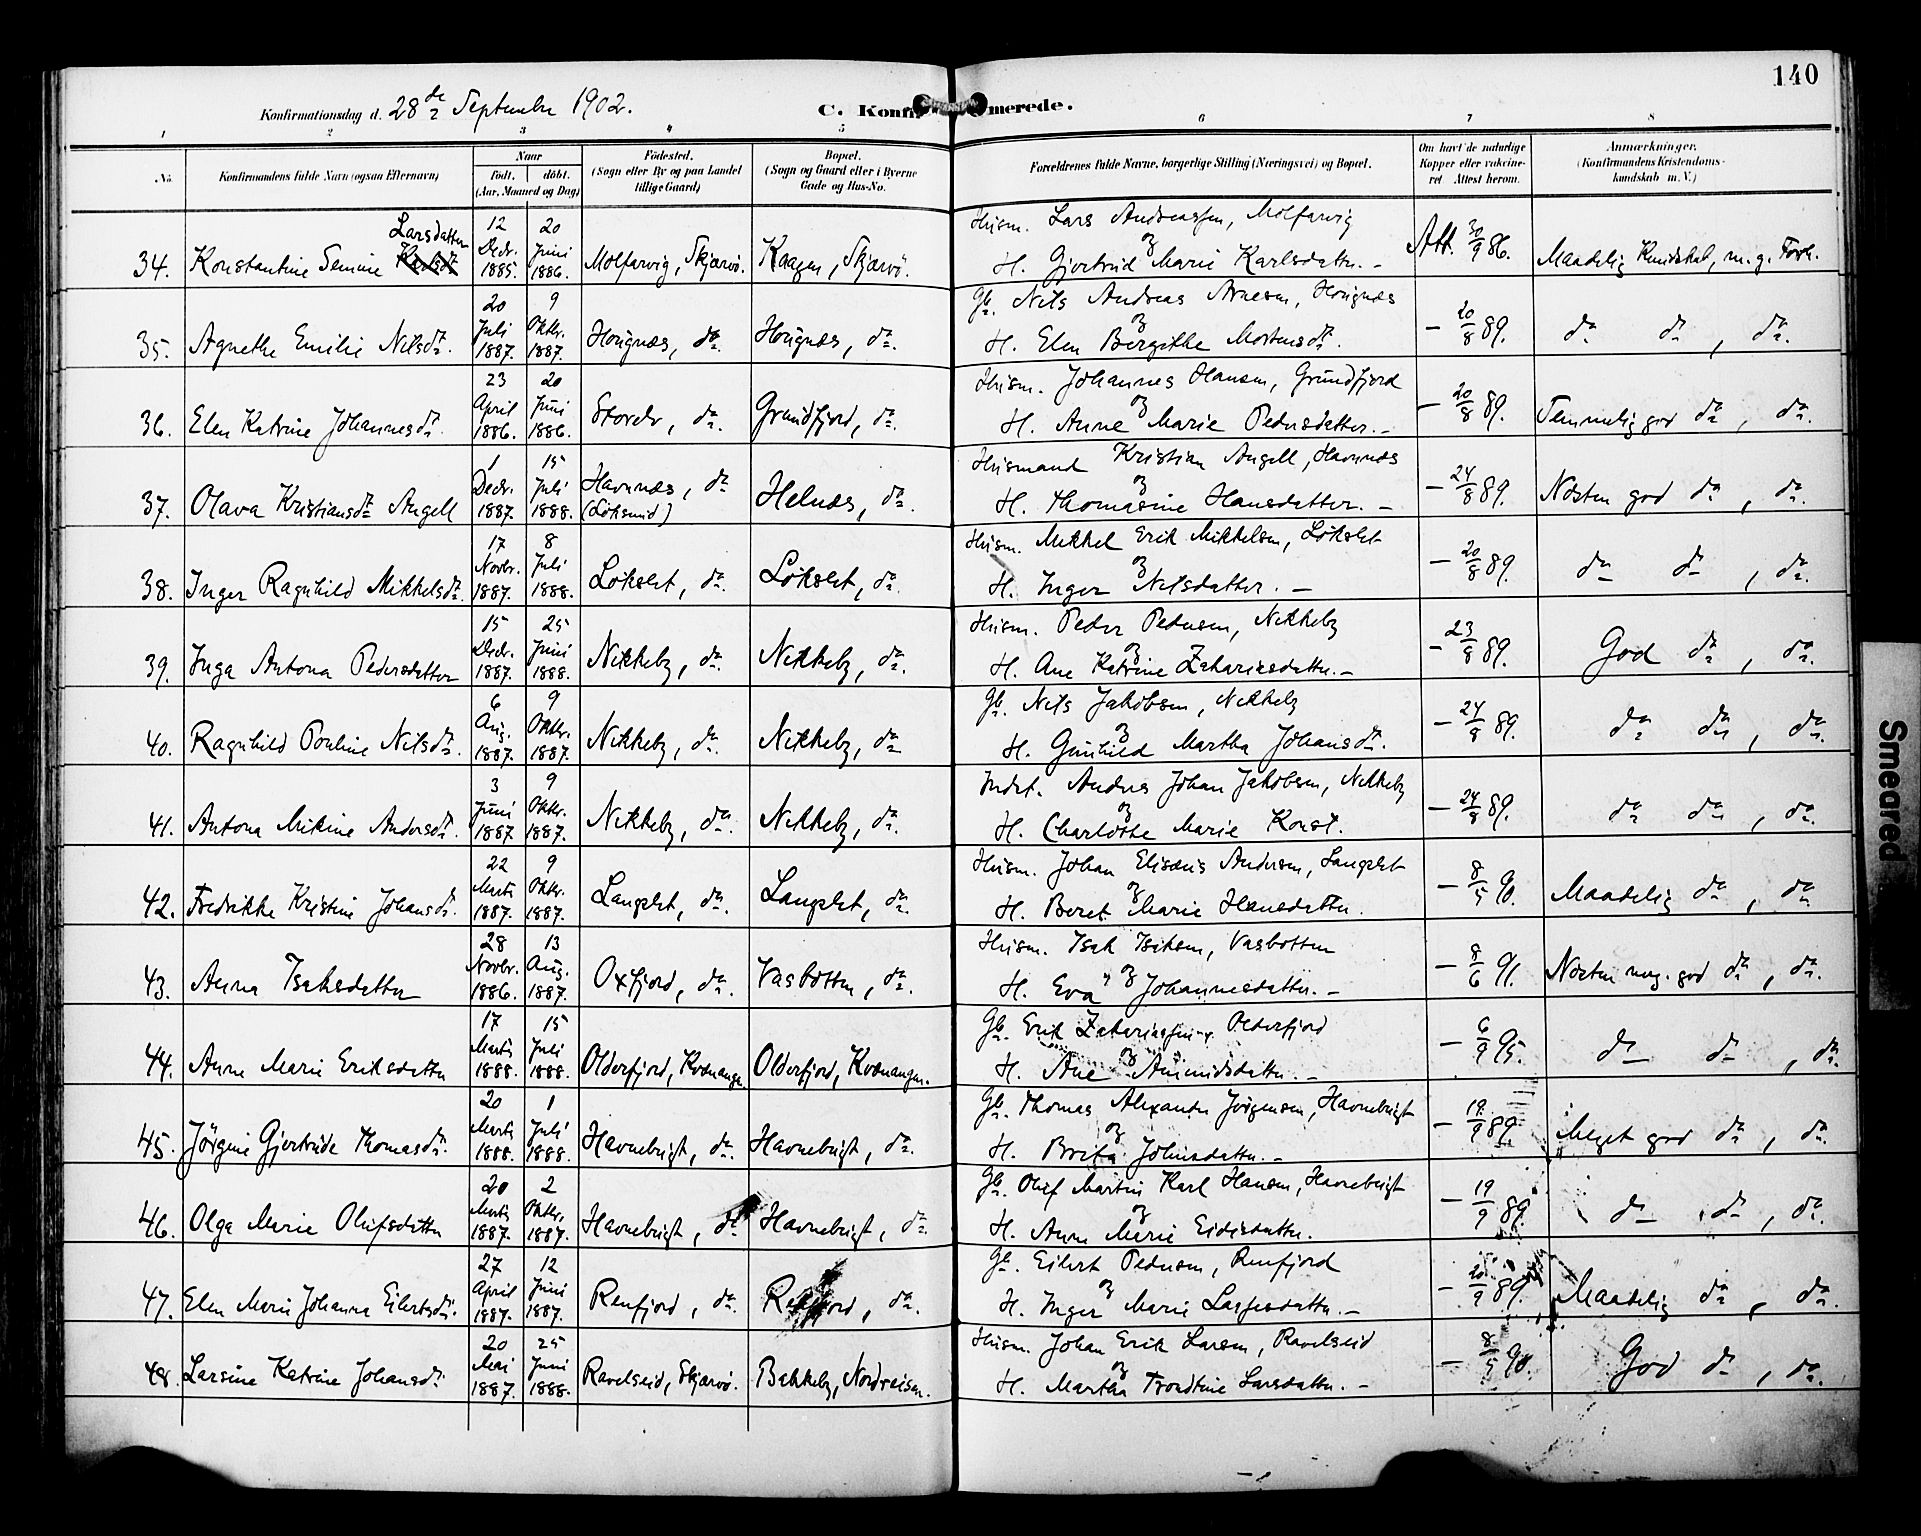 140
Konfirmationsdag d. 28de September 1902.
C. Konfirmerede.
1 2 3 4 5 6 7 8
No. | Konfirmandens fulde Navn (ogsaa Efternavn) | Naar født. døbt. (Aar, Maaned og Dag) | Fødested. (Sogn eller By og paa Landet tillige Gaard) | Bopæl. (Sogn og Gaard eller i Byerne Gade og Hus-No. | Forældrenes fulde Navne, borgerlige Stilling (Næringsvei) og Bopæl. | Om havt de naturlige Kopper eller vakcineret. Attest herom. | Anmærkninger. (Konfirmandens Kristendomskundskab m. V.)
34. Konstantine Semine Larsdatter | 12 Decbr. 1885. | 20 Juni 1886. | Molfarvig, Skjærvö. | Kaagen, Skjærvö. | Husm. Lars Andreassen, Molfarvig og H. Gjertrud Marie Karlsdatter. – | Att. 30/9 86. | Maadelig Kundskab, m. g. Forh.
35. Agnethe Emilie Nilsdt. | 20 Juli 1887. | 9 Oktbr. 1887. | Hougnæs, do. | Hougnæs, do. | Gb. Nils Andreas Arnesen, Hougnæs og H. Elen Bergithe Mortensdt. | – 20/8 89. | do do, do.
36. Elen Katrine Johannesdt. | 23 April 1886. | 20 Juni 1886. | Storelv, do. | Grundfjord, do. | Husm. Johannes Hansen, Grundfjord og H. Anne Marie Pedersdatter. – | – 20/8 89. | Temmelig god do, do.
37. Olava Kristiansdt Angell | 1 Decbr. 1887. | 15 Juli 1888. | Havnnæs, do (Löksund) | Helnæs, do. | Husmand Kristian Angell, Havnnæs og H. Thomasine Hansdatter. – | – 24/8 89. | Næsten god do, do.
38. Inger Ragnhild Mikkelsdt. | 17 Novbr. 1887. | 8 Juli 1888. | Lökslet, do. | Lökslet, do. | Husm. Mikkel Erik Mikkelsen, Lökslet og H. Inger Nilsdatter. – | – 20/8 89. | do do, do.
39. Inga Antona Pedersdatter | 15 Decbr. 1887. | 25 Juni 1888. | Nikkeby, do. | Nikkeby, do. | Husm. Peder Pedersen, Nikkeby og H. Ane Katrine Zakariasdatter. – | – 23/8 89. | God do, do.
40. Ragnhild Pouline Nilsdt. | 6 Aug. 1887. | 9 Oktbr. 1887. | Nikkeby, do. | Nikkeby, do | Gb. Nils Jakobsen, Nikkeby og H. Gunhild Martha Johansdt. | – 24/8 89. | do do, do.
41. Antona Mikine Andersdt. | 3 Juni 1887. | 9 Oktbr. 1887. | Nikkeby, do. | Nikkeby, do. | Indst. Anders Johan Jakobsen, Nikkeby og H. Charlotte Marie Konst. | – 24/8 89. | do do, do.
42. Fredrikke Kristine Johansdt. | 22 Marts 1887. | 9 Oktbr. 1887. | Langslet, do. | Langslet, do. | Husm. Johan Elisæus Andersen, Langslet og H. Beret Marie Hansdatter. | – 8/5 90. | Maadelig do, do
43. Anna Isaksdatter | 28 Novbr. 1886. | 13 Aug. 1887. | Oxfjord, do. | Vasbotten, do. | Husm. Isak Isaksen, Vasbotten og H. Eva Johannesdatter. – | – 8/6 91. | Næsten meg. god do, do.
44. Anne Marie Eriksdatter | 17 Marts 1888. | 15 Juli 1888. | Olderfjord, Kvænangen | Olderfjord, Kvænangen. | Gb. Erik Zakariassen, Olderfjord og H. Ane Amundsdatter. – | – 6/9 95. | do do, do.
45. Jörgine Gjertrude Thomasdt. | 20 Marts 1888. | 1 Juli 1888. | Havnebugt, do. | Havnebugt, do. | Gb. Thomas Alexander Jörgensen, Havnebugt og H. Brita Johnsdatter. – | – 19/9 89. | Meget god do, do.
46. Olga Marie Olufsdatter | 20 Marts 1887. | 2 Oktbr. 1887. | Havnebugt, do | Havnebugt, do. | Gb. Oluf Martin Karl Hansen, Havnebugt og H. Anne Marie Eidisdatter. | – 19/9 89. | do do, do.
47. Elen Marie Johanna Eilertsdt. | 27 April 1887. | 12 Juni 1887. | Renfjord, do. | Renfjord, do. | Gb. Eilert Pedersen, Renfjord og H. Inger Marie Larsesdatter. – | – 20/9 89. | Maadelig do, do.
48. Larsine Katrine Johansdt. | 20 Mai 1887. | 25 Juni 1888. | Ravelseid, Skjærvö. | Bakkeby, Nordreisen. | Husm. Johan Erik Larsen, Ravelseid og H. Martha Trondtine Larsdatter. – | – 8/5 90. | God do, do.
Smeared